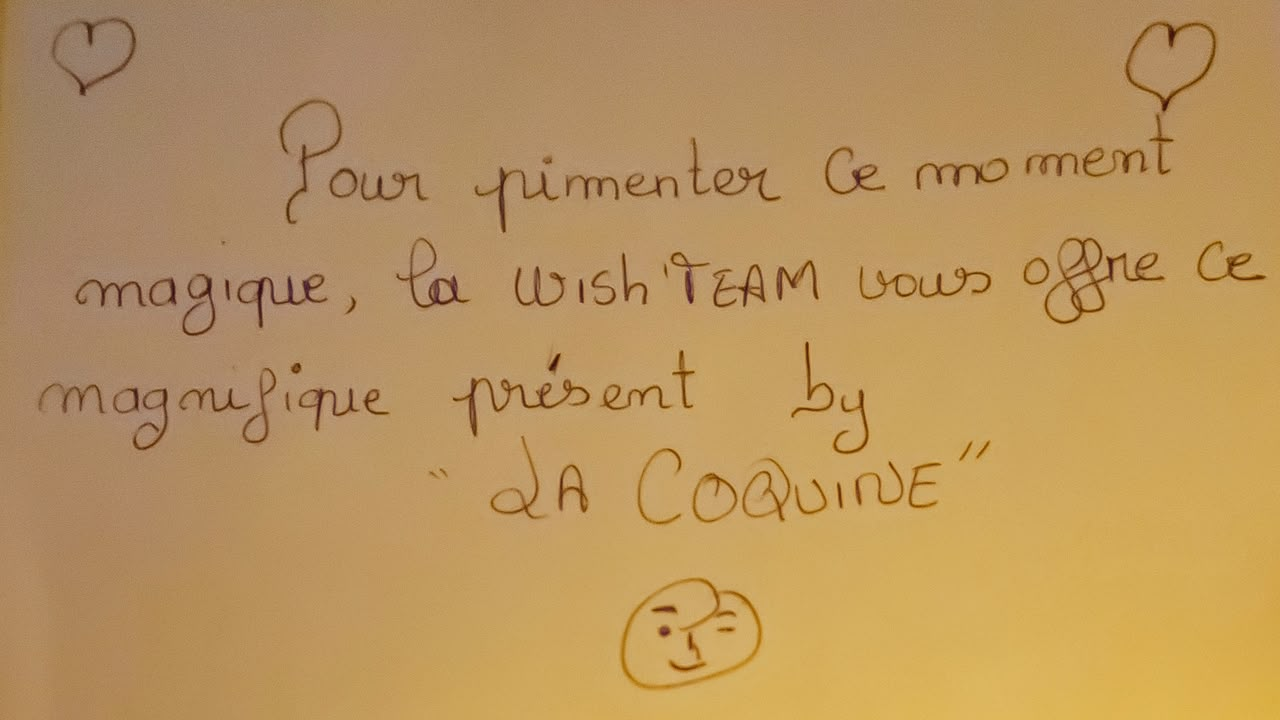 Pour pimenter ce moment
magique, la WISH'TEAM vous offre ce
magnifique présent by
"LA COQUINE"